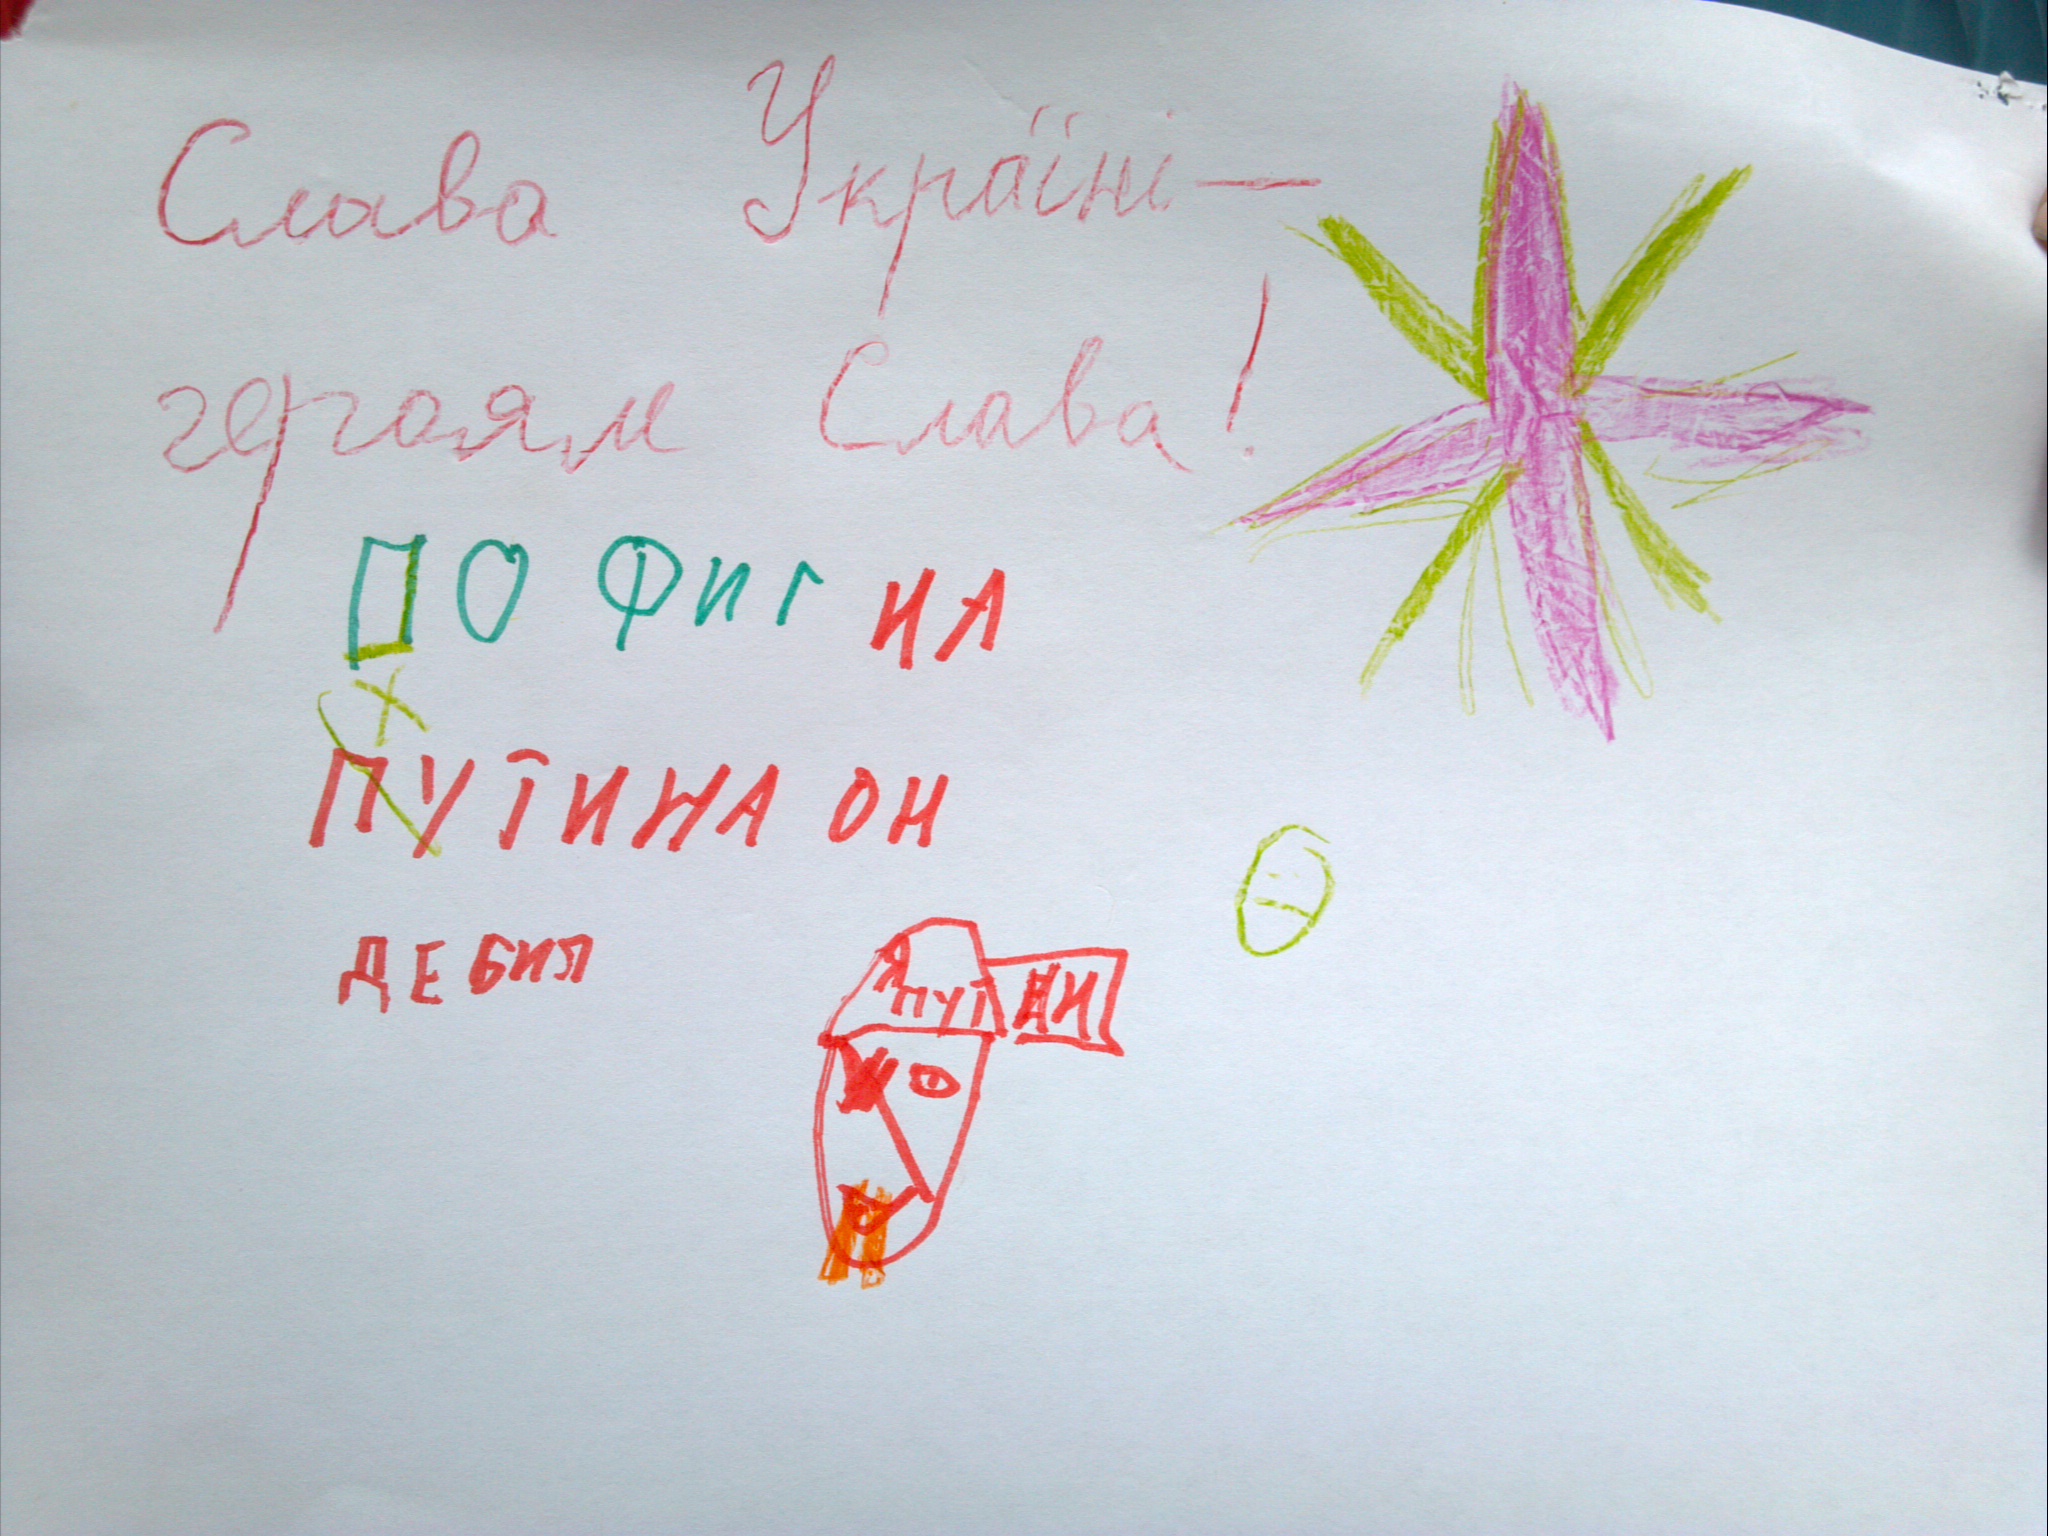 Слава Україні —
героям Слава!
ПОФИГ НА
ПУТИНА ОН
ДЕБИЛ
Я
ПУТ